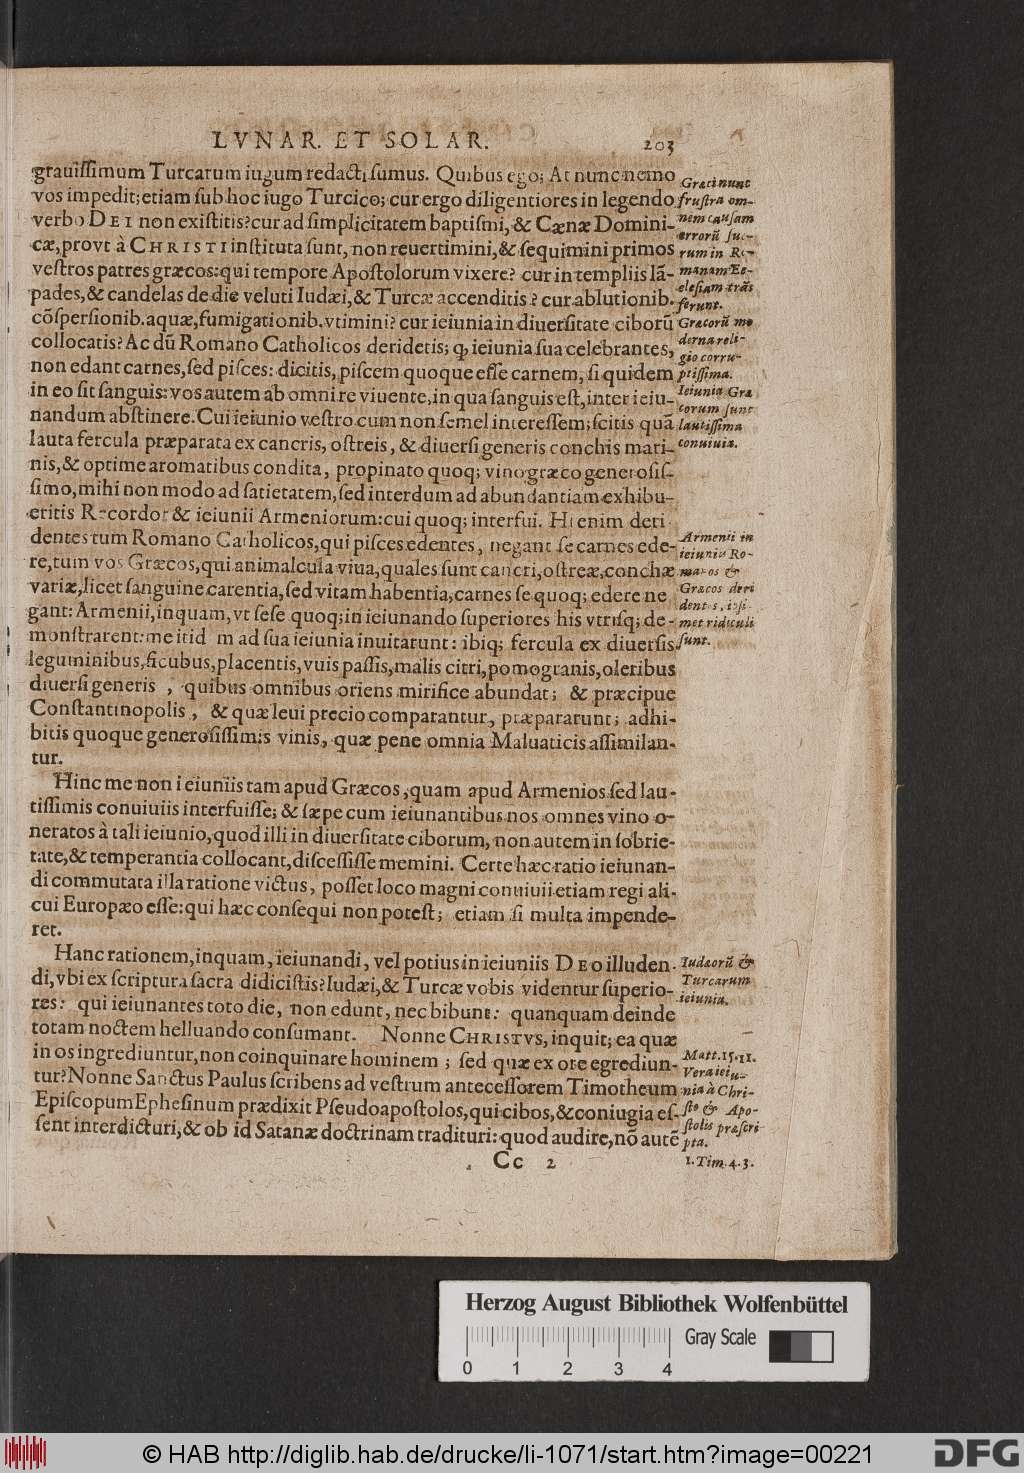 LVNAR. ET SOLAR.
203
grauiſſimum Turcarum iugum redacti ſumus. Quibus ego; At nunc nemo
vos impedit; etiam ſub hoc iugo Turcico; cur ergo diligentiores in legendo
verbo DEI non exiſtitis? cur ad ſimplicitatem baptiſmi, & Cænæ Domini-
cæ, provt à CHRISTI inſtituta ſunt, non reuertimini, & ſequimini primos
veſtros patres græcos: qui tempore Apoſtolorum vixere? cur in templiis lã-
pades, & candelas de die veluti Iudæi, & Turcæ accenditis? cur ablutionib.
cõſperſionib. aquæ, fumigationib. vtimini? cur ieiunia in diuerſitate ciborũ
collocatis? Ac dũ Romano Catholicos deridetis; q, ieiunia ſua celebrantes,
non edant carnes, ſed piſces: dicitis, piſcem quoque eſſe carnem, ſi quidem
in eo ſit ſanguis: vos autem ab omni re viuente, in qua ſanguis eſt, inter ieiu-
nandum abſtinere. Cui ieiunio veſtro cum non ſemel intereſſem; ſcitis quã
lauta fercula præparata ex cancris, oſtreis, & diuerſi generis conchis mari-
nis, & optime aromatibus condita, propinato quoq; vino græco generoſiſ-
ſimo, mihi non modo ad ſatietatem, ſed interdum ad abundantiam exhibu-
eritis Recordor & ieiunii Armeniorum: cui quoq; interfui. Hi enim deri
dentes tum Romano Catholicos, qui piſces edentes, negant ſe carnes ede-
re, tum vos Græcos, qui animalcula viua, quales ſunt cancri, oſtreæ, conchæ
variæ, licet ſanguine carentia, ſed vitam habentia, carnes ſe quoq; edere ne
gant: Armenii, inquam, vt ſeſe quoq; in ieiunando ſuperiores his vtriſq; de-
monſtrarent: me itid m ad ſua ieiunia inuitarunt: ibiq; fercula ex diuerſis
leguminibus, ficubus, placentis, vuis paſſis, malis citri, pomogranis, oleribus
diuerſi generis, quibus omnibus oriens mirifice abundat; & præcipue
Conſtantinopolis, & quæ leui precio comparantur, præpararunt; adhi-
bitis quoque generoſiſſimis vinis, quæ pene omnia Maluaticis aſſimilan-
tur.
Hinc me non ieiuniis tam apud Græcos, quam apud Armenios ſed lau-
tiſſimis conuiuiis interfuiſſe; & ſæpe cum ieiunantibus nos omnes vino o-
neratos à tali ieiunio, quod illi in diuerſitate ciborum, non autem in ſobrie-
tate, & temperantia collocant, diſceſſiſſe memini. Certe hæc ratio ieiunan-
di commutata illa ratione victus, poſſet loco magni conuiuii etiam regi ali-
cui Europæo eſſe: qui hæc conſequi non poteſt; etiam ſi multa impende-
ret.
Hanc rationem, inquam, ieiunandi, vel potius in ieiuniis DEO illuden-
di, vbi ex ſcriptura ſacra didiciſtis? Iudæi, & Turcæ vobis videntur ſuperio-
res: qui ieiunantes toto die, non edunt, nec bibunt: quanquam deinde
totam noctem helluando conſumant. Nonne CHRISTVS, inquit; ea quæ
in os ingrediuntur, non coinquinare hominem; ſed quæ ex ore egrediun-
tur? Nonne Sanctus Paulus ſcribens ad veſtrum anteceſſorem Timotheum
Epiſcopum Epheſinum prædixit Pſeudoapoſtolos, qui cibos, & coniugia eſ-
ſent interdicturi, & ob id Satanæ doctrinam tradituri: quod audire, nõ autẽ
Cc 2
Græci nunc
fruſtra om-
nem cauſam
errorũ ſuo-
rum in Ro-
manam Ec-
cleſiam trãſ
ferunt.
Græcorũ mo
derna reli-
gio corru-
ptiſſima.
Ieiunia Græ
corum ſunt
lautiſſima
conuiuia.
Armenii in
ieiuniis Ro-
manos &
Græcos deri
dentes, ipſi-
met ridiculi
ſunt.
Iudæorũ &
Turcarum
ieiunia.
Matt. 15. 11.
Vera ieiu-
nia à Chri-
ſto & Apo-
ſtolis præſcri-
pta.
1. Tim. 4. 3.
Herzog August Bibliothek Wolfenbüttel
Gray Scale
0 1 2 3 4
© HAB http://diglib.hab.de/drucke/li-1071/start.htm?image=00221
DFG